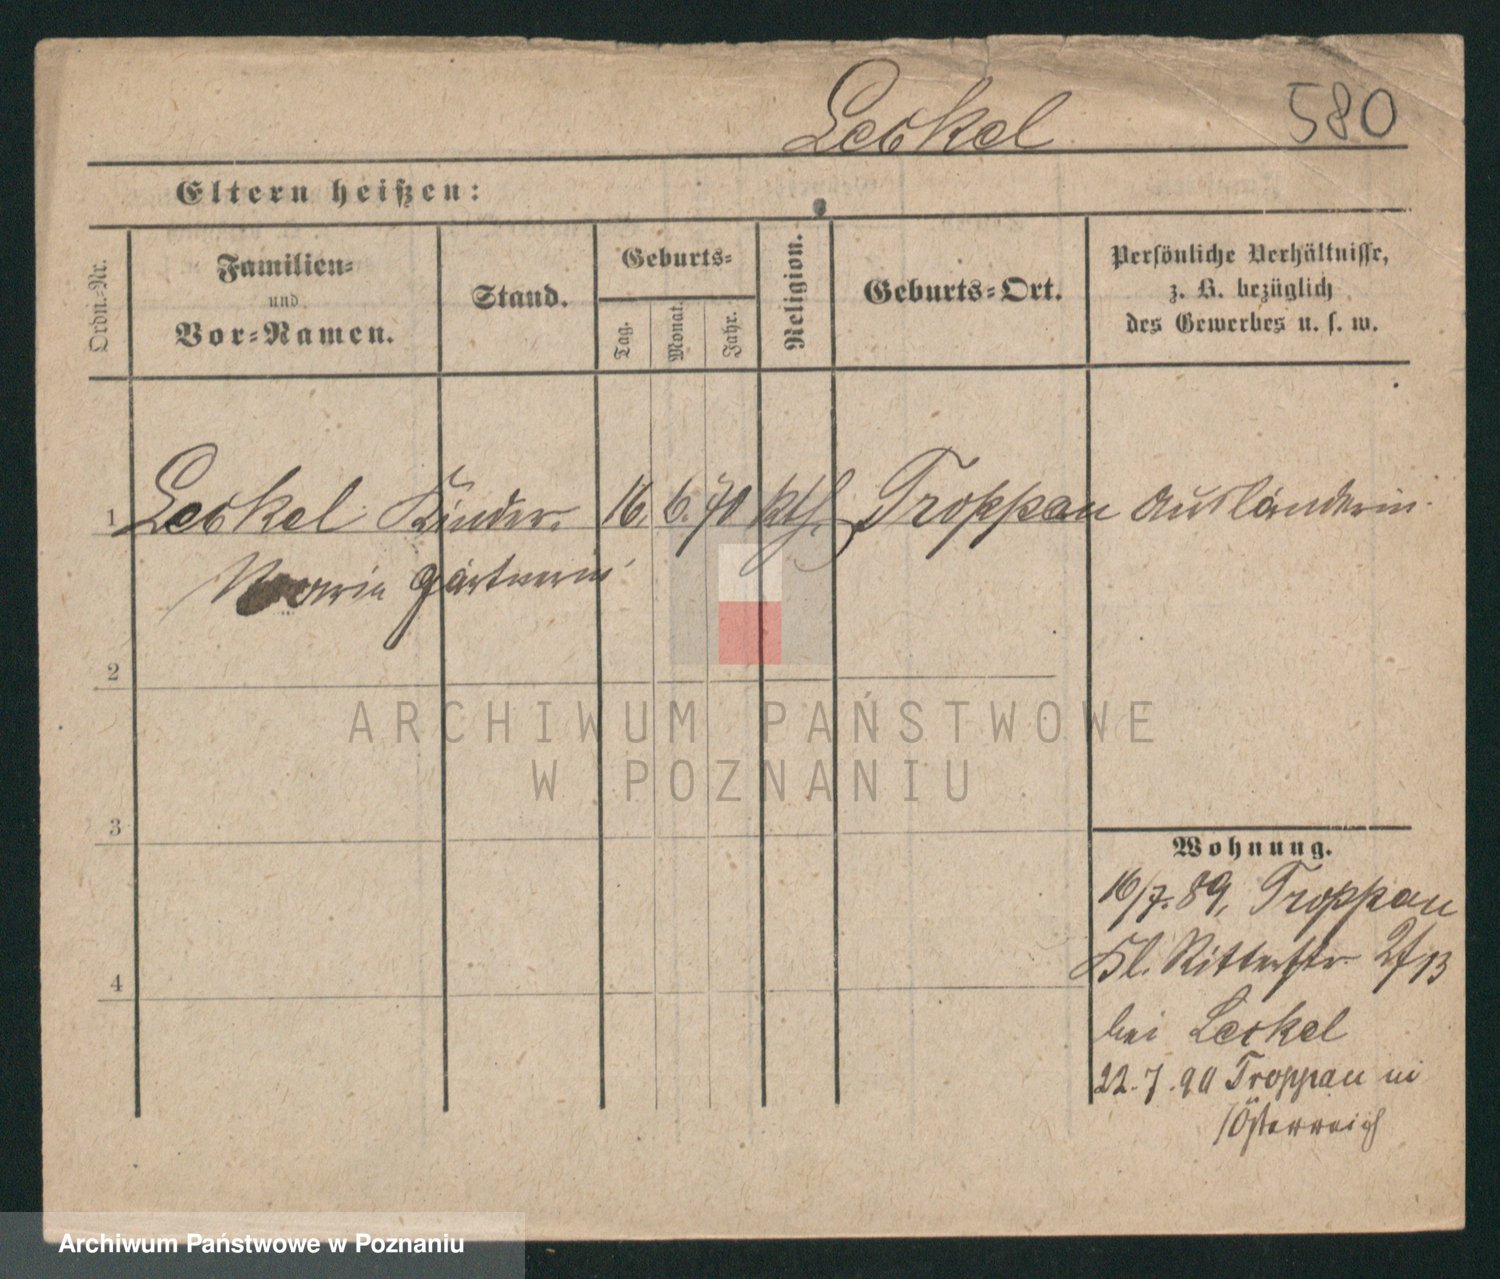 Leskel 580
Eltern heißen:
Ordn.-Nr.
Familien-
und
Vor-Namen.
Stand.
Geburts-
Tag.
Monat.
Jahr.
Religion.
Geburts-Ort.
Persönliche Verhältnisse,
z. B. bezüglich
des Gewerbes u. s. w.
1 Leskel Kinder- 16. 6. 70 kth. Troppau Ausländerin
Marie gärtnerin
2
ARCHIWUM PAŃSTWOWE
W POZNANIU
3
Wohnung.
16/7. 89, Troppau
Kl. Ritterstr. 13
4
bei Leskel
22.7.90 Troppau in
Österreich
Archiwum Państwowe w Poznaniu